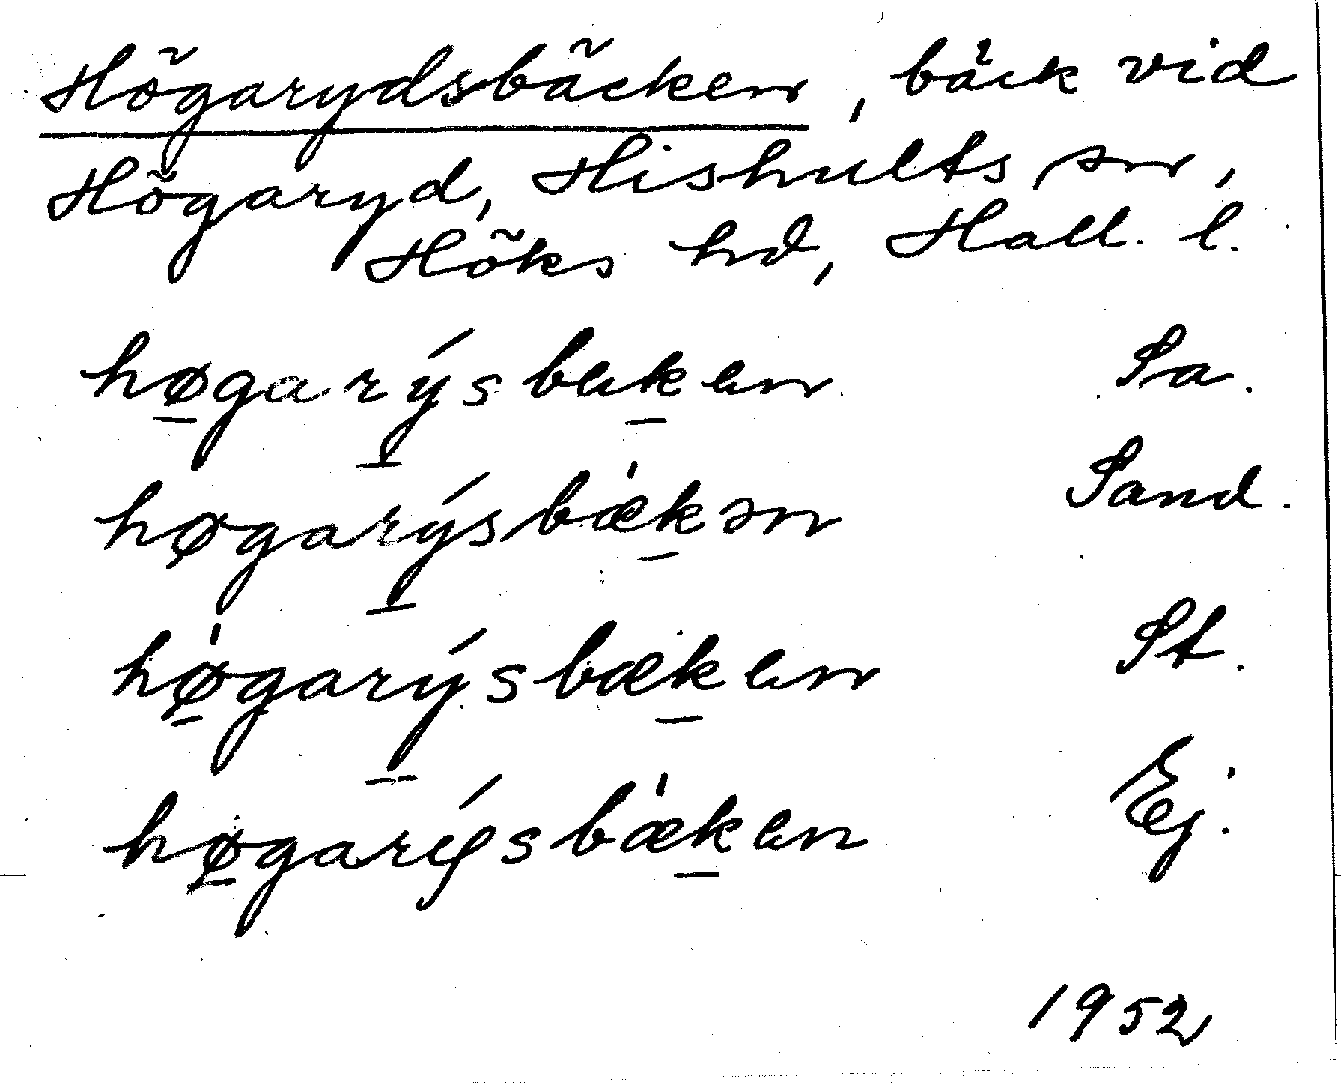 Högarydsbäcken, bäck vid
Högaryd, Hishults sn,
Höks hd, Hall. l.
hø̱garý̱sbæḵæn Sa.
høgarý̱sbæ̍ḵən Sand.
hø̱̍garý̱sbæḵæn St.
hø̱garýsbæ̍ḵæn Ej.
1952